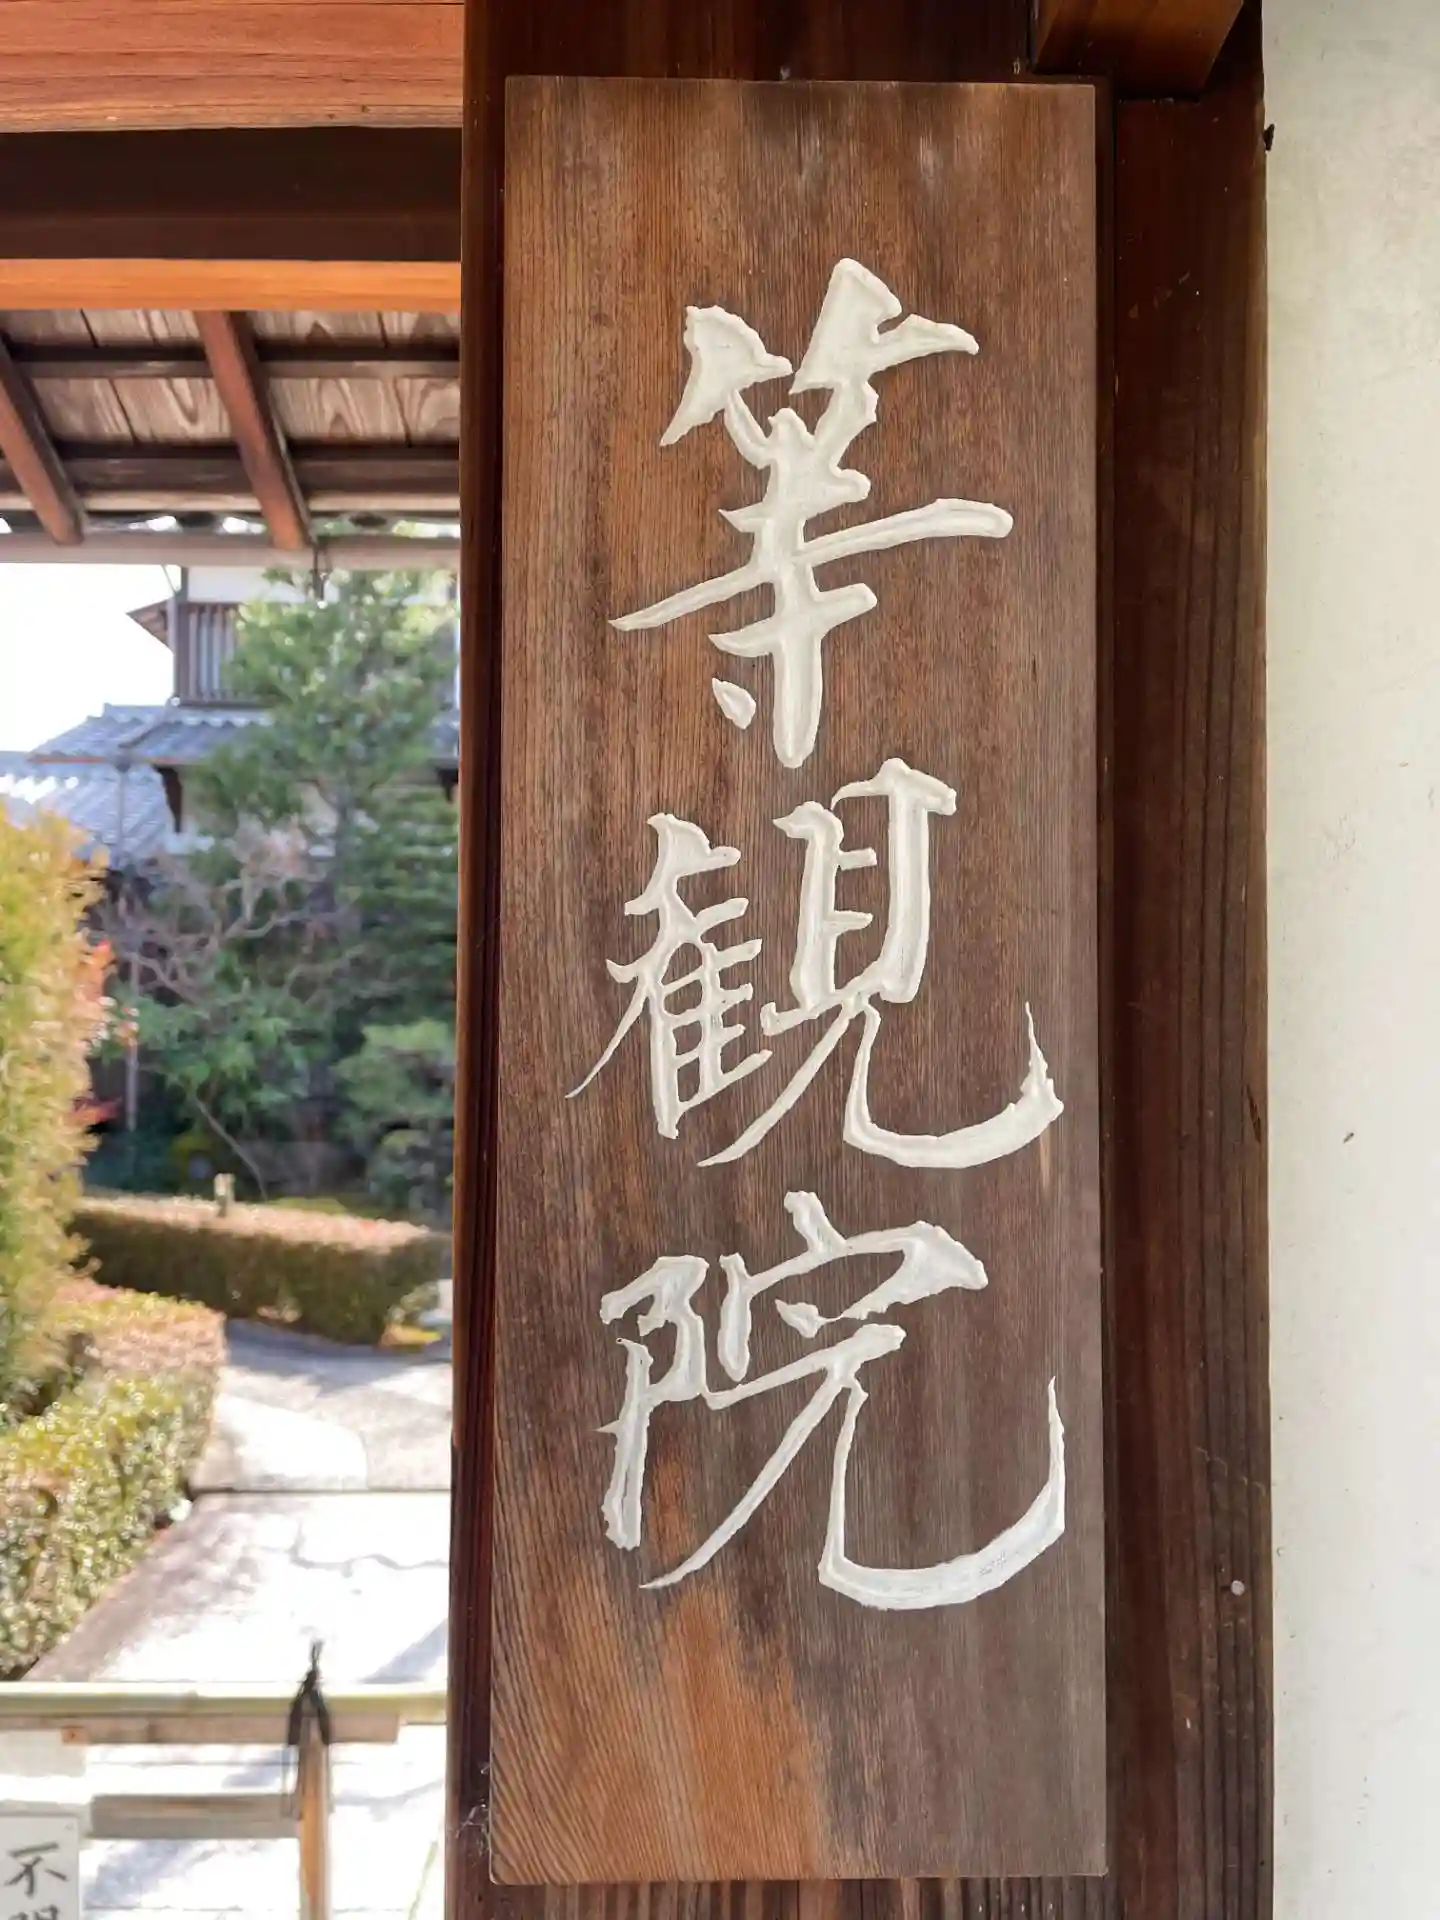 等観院
不